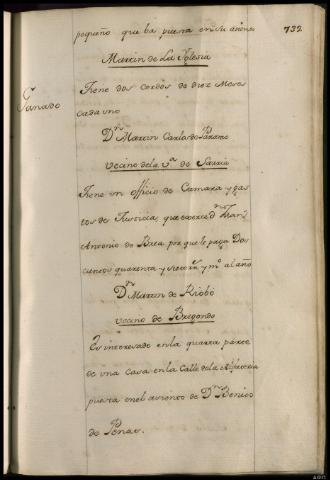 pequeño que ba puesta en su asiento
739
Martin de La Yglesia
Ganado
Tiene dos cerdos de diez Meses
cada uno
Dn. Martin Carlos de Páramo
vecino de la Va. de Sarria
Tiene un officio de Camara, y gas
tos de Justicia, que exerce Dn. Franco.
Antonio de Brea, por que le paga Dos
cientos quarenta y Rs. y mrs. al año
Dn. Martin de Riobó
vecino de Bregondo
Es interesado en la quarta parte
de una Casa en la Calle de la
puesta en el assiento de Dn. Benito
de Penas.